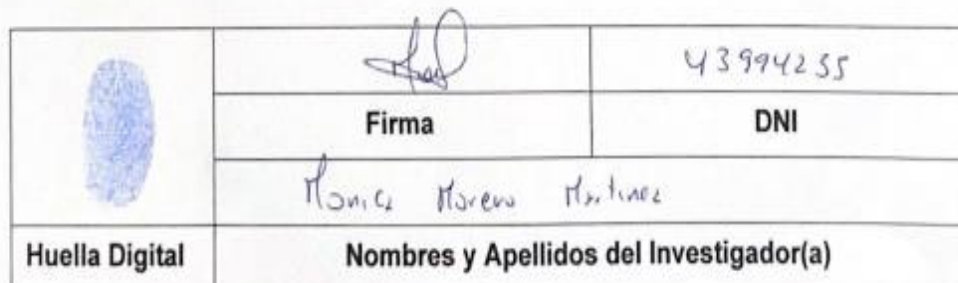 43994255
Firma
DNI
Monica Moreno Martinez
Huella Digital
Nombres y Apellidos del Investigador(a)